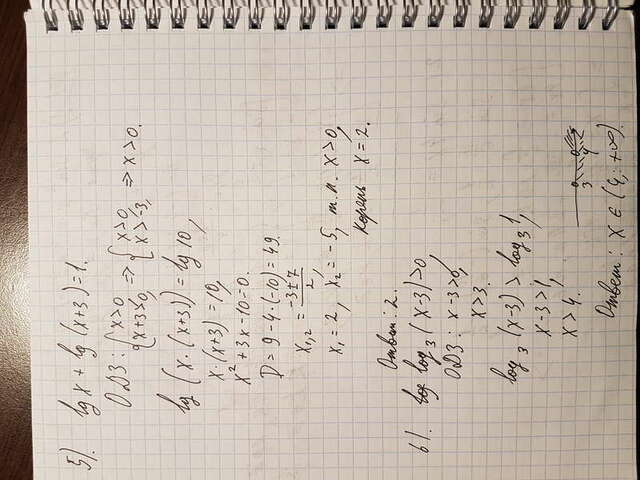 5). lg x + lg (x+3) = 1.
ОДЗ: { x>0, x+3>0, => { x>0, x>-3, => x>0.
lg (x·(x+3)) = lg 10,
x·(x+3) = 10,
x² + 3x - 10 = 0.
D = 9 - 4·(-10) = 49.
x₁,₂ = (-3±7)/2,
x₁ = 2, x₂ = -5, т.к. x>0,
корень x = 2.
Ответ: 2.
6). log₃ (x-3) > 0,
ОДЗ: x-3>0,
x>3.
log₃ (x-3) > log₃ 1,
x-3>1,
x>4.
3 4
Ответ: x ∈ (4; +∞).